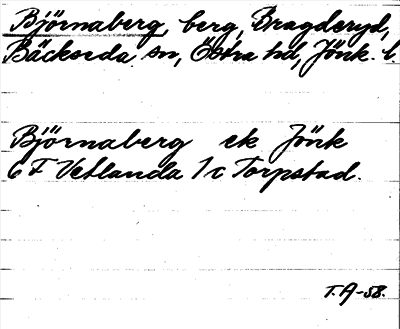 Björnaberg, berg, Bragderyd,
Bäckseda sn, Östra hd, Jönk. l.
Björnaberg ek Jönk
6F Vetlanda 1c Torpstad.
T.A-58.